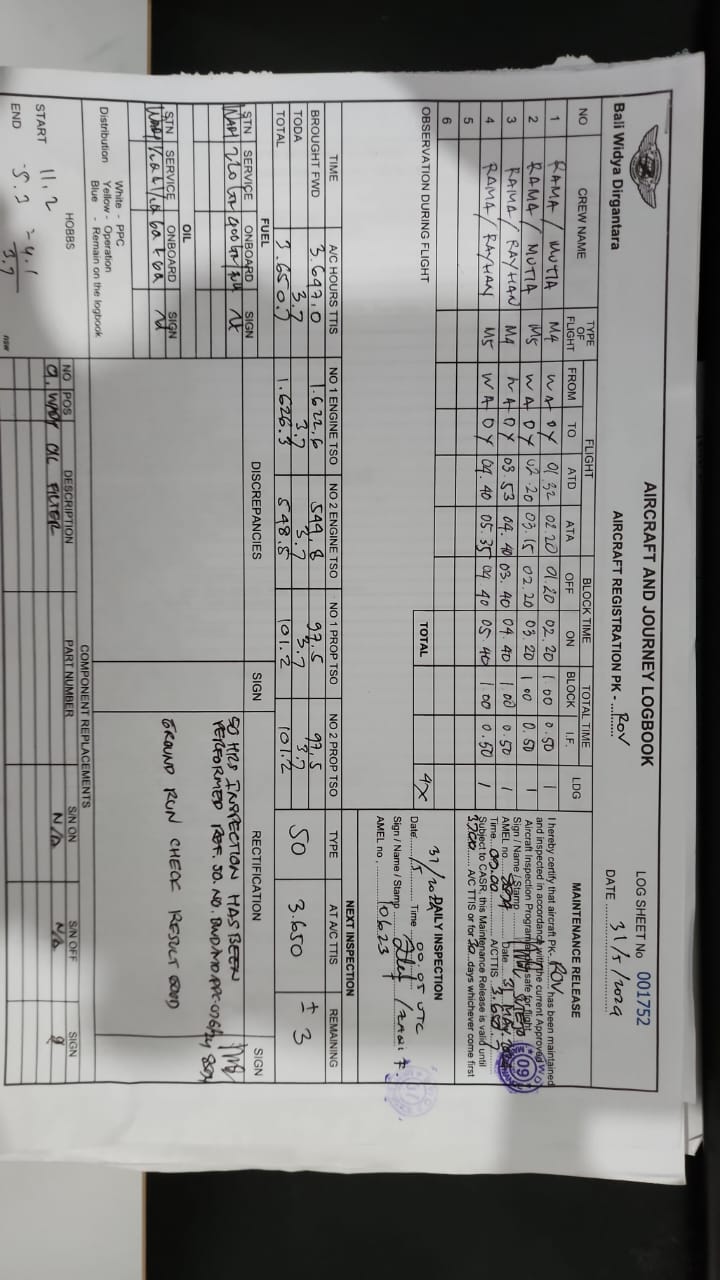 Bali Widya Dirgantara
AIRCRAFT AND JOURNEY LOGBOOK
AIRCRAFT REGISTRATION PK - ROV
LOG SHEET No 001752
DATE 31/5/2024
NO CREW NAME TYPE OF FLIGHT FLIGHT BLOCK TIME TOTAL TIME LDG
FROM TO ATD ATA OFF ON BLOCK I.F.
1 RAMA / MUTIA M4 WADY 01.32 02.20 01.20 02.20 1.00 0.50 1
2 RAMA / MUTIA M5 WADY 02.20 03.15 02.20 03.20 1.00 0.50 1
3 RAMA / RAYHAN M4 WADY 03.53 04.40 03.40 04.40 1.00 0.50 1
4 RAMA / RAYHAN M5 WADY 04.40 05.35 04.40 05.40 1.00 0.50 1
5
6
OBSERVATION DURING FLIGHT
TOTAL 4X
MAINTENANCE RELEASE
I hereby certify that aircraft PK- ROV has been maintained
and inspected in accordance with the current Approved
Aircraft Inspection Program and safe for flight.
Sign / Name / Stamp
AMEL no. Date 31 MAY
Time A/C TTIS
Subject to CASR, this Maintenance Release is valid until
3700 A/C TTIS or for 30 days whichever come first
DAILY INSPECTION
Date 31/5/2024 Time 00.05 UTC
Sign / Name / Stamp
AMEL no. 10623
TIME A/C HOURS TTIS NO 1 ENGINE TSO NO 2 ENGINE TSO NO 1 PROP TSO NO 2 PROP TSO
BROUGHT FWD 3.647,0 1.622,6 544,8 97,5 97,5
TODA 3.7 3.7 3.7 3.7 3.7
TOTAL 3.650.7 1.626.3 548.5 101.2 101.2
NEXT INSPECTION
TYPE AT A/C TTIS REMAINING
50 3.650 ± 3
FUEL
STN SERVICE ONBOARD SIGN
OIL
STN SERVICE ONBOARD SIGN
DISCREPANCIES SIGN RECTIFICATION SIGN
50 HRS INSPECTION HAS BEEN
PERFORMED REF. JO. NO.
GROUND RUN CHECK RESULT GOOD
Distribution White - PPC
Yellow - Operation
Blue - Remain on the logbook
HOBBS
START 11.2
END
3.7
COMPONENT REPLACEMENTS
NO POS DESCRIPTION PART NUMBER S/N ON S/N OFF SIGN
OIL FILTER N/A N/A